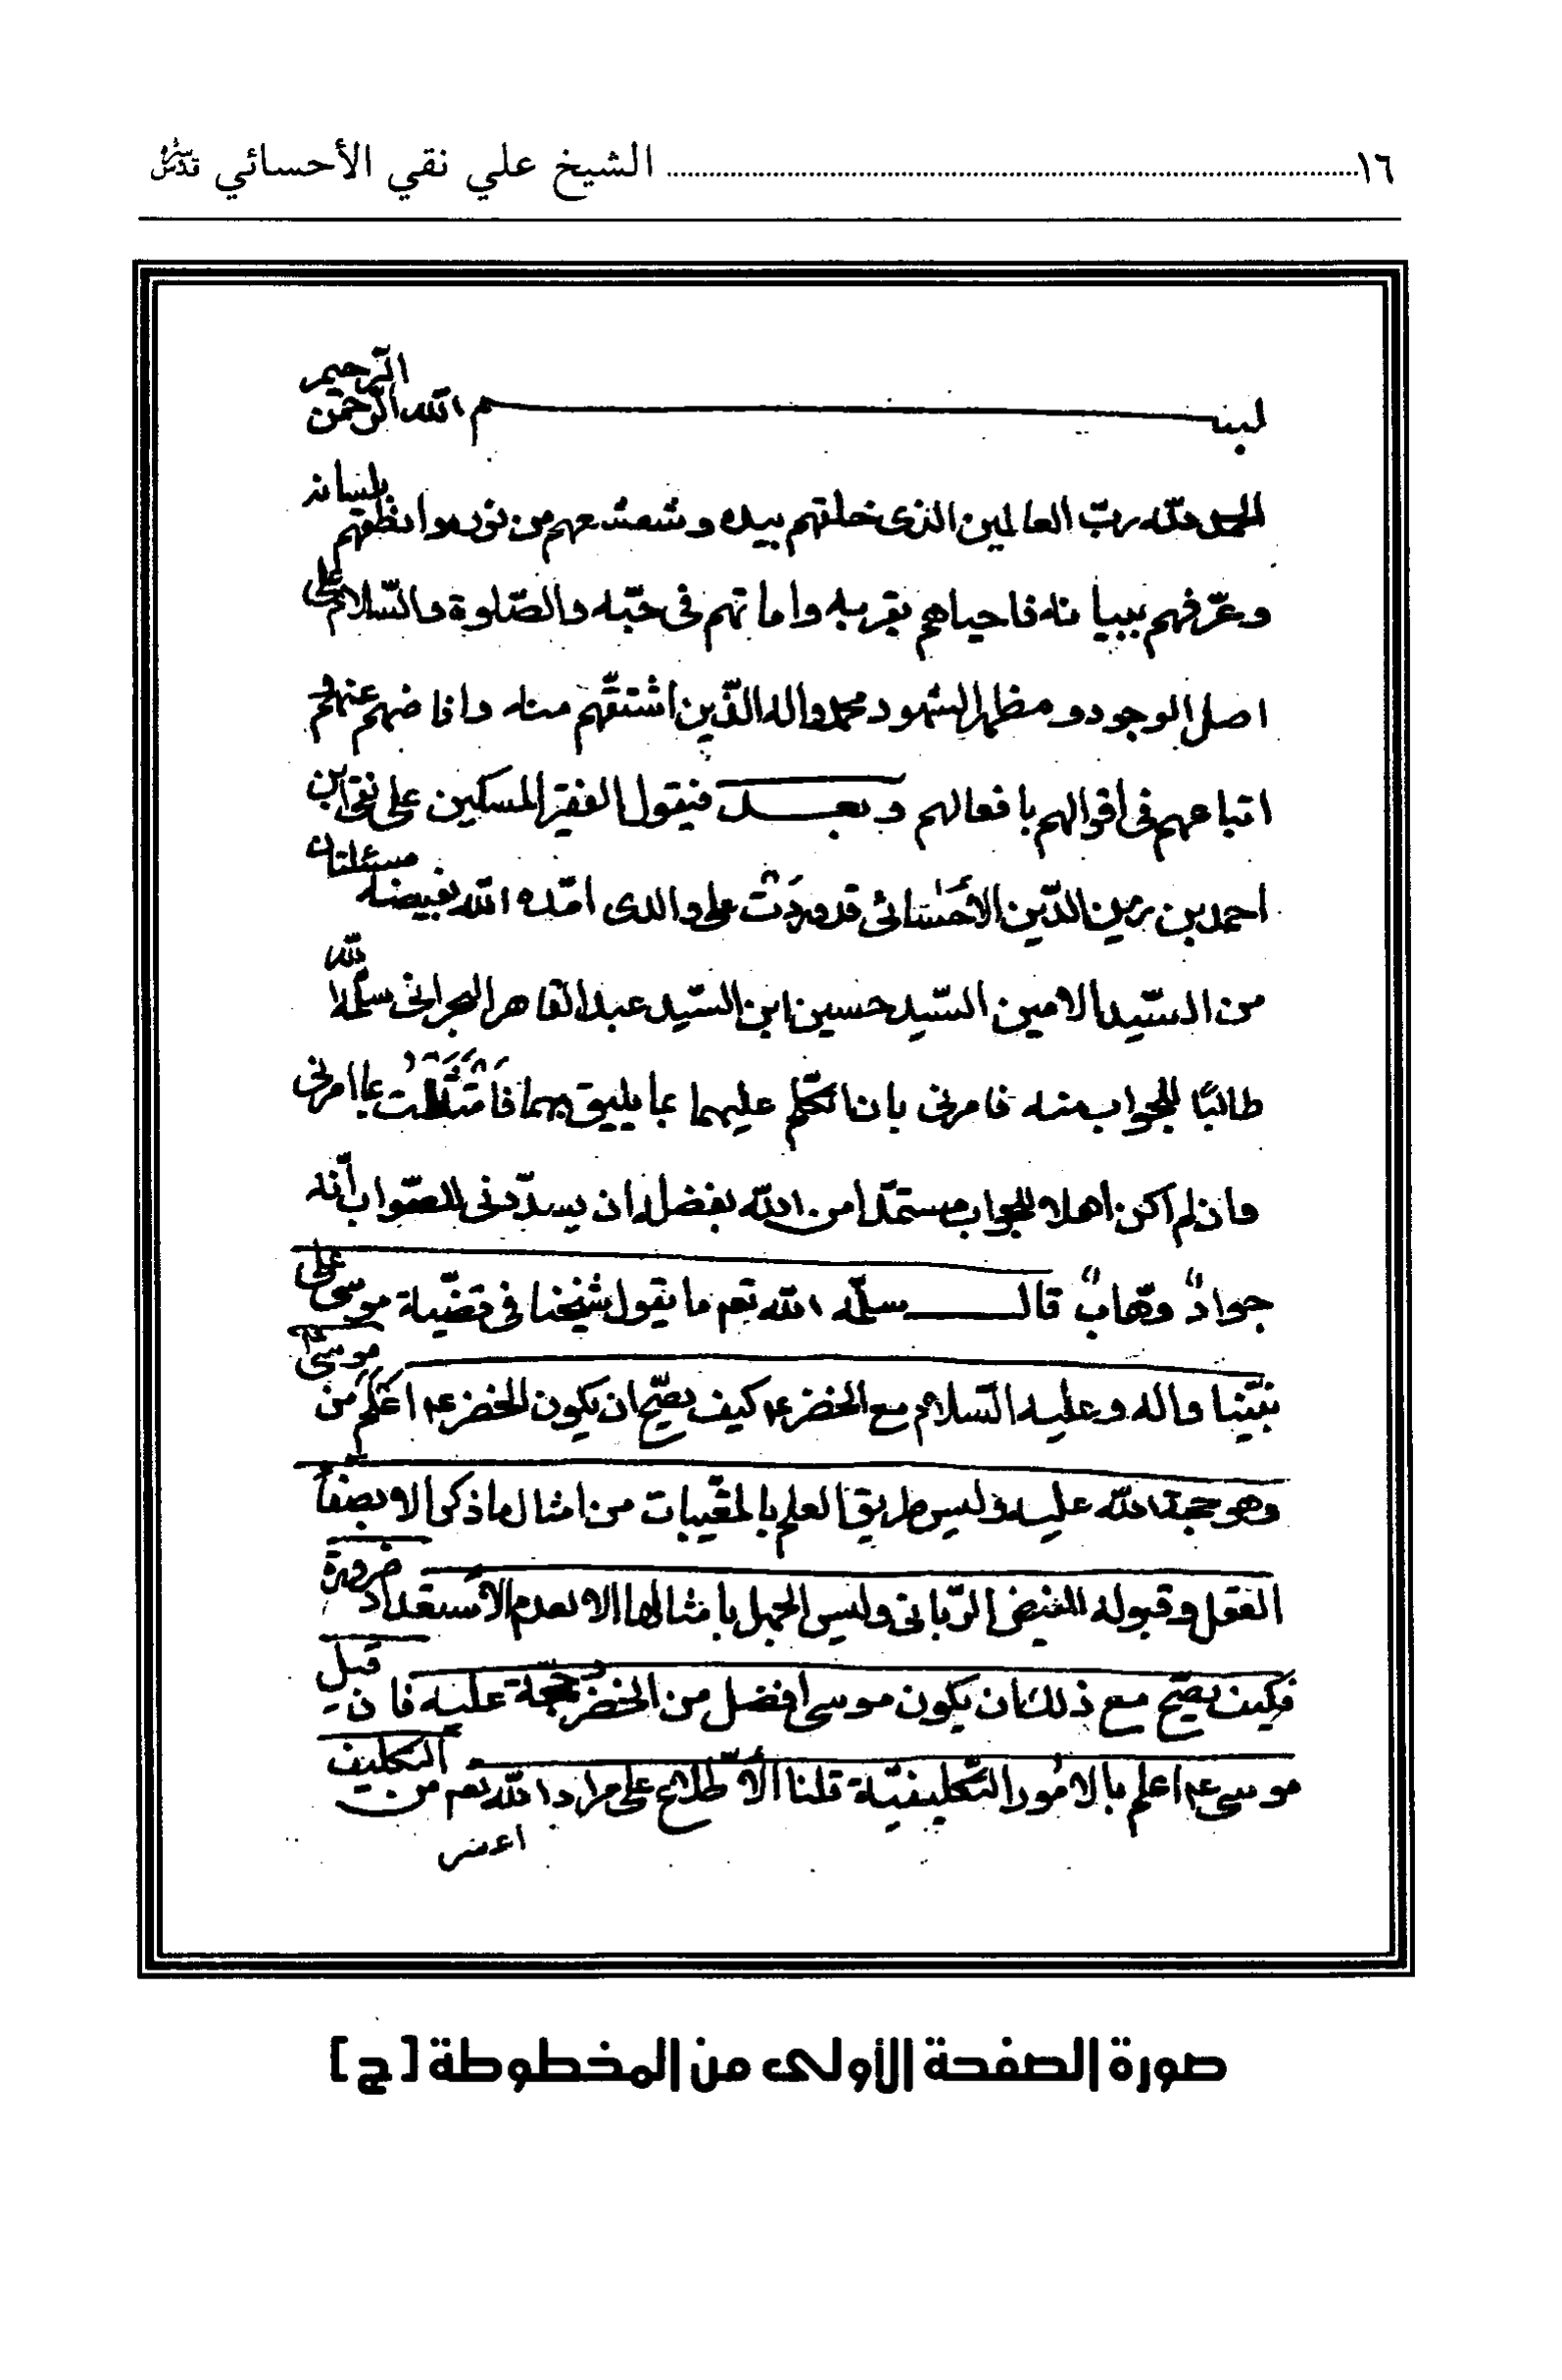 ١٦ الشيخ علي نقي الأحسائي قدس سره
بسم الله الرحمن الرحيم
الحمد لله رب العالمين الذى خلقهم بيده و شعشعهم من نوره وانطقهم بلسانه
وعرّفهم ببيانه فاحياهم بقربه واماتهم فى حبّه والصّلوة والسّلام على
اصل الوجود و مظهر الشهود محمد واله الذّين اشتقّهم منه وافاضهم عنهم
اتباعهم فى اقوالهم بافعالهم وبعد فيقول الفقير المسكين على نقى ابن
احمد بن زين الدّين الأحسائى قد وردت على والدى امّده الله بفيضه مسئلتان
من السّيد الامين السّيد حسين ابن السّيد عبد القاهر البحرانى سلمه الله
طالبًا للجواب منه فامرنى بان اتكلّم عليهما بما يليق بهما فامتثلت بما امرنى
وان لم اكن اهلا للجواب مستمدّا من الله بفضله ان يسدّدنى للصّواب انّه
جوادٌ وهّابٌ قال سلّمه الله تعم ما يقول شيخنا فى قضيّة موسى على
نبيّنا واله وعليه السّلام مع الخضر ع كيف يصّح ان يكون الخضر ع اعلم من موسى ع
وهو حجة الله عليه وليس طريق العلم بالمغّيبات من امثال ما ذكر الا بصفاء
العقل وقبوله للفيض الرّبانى وليس الجهل بامثالها الا لعدم الاستعداد ضرورة
فكيف يصّح مع ذلك ان يكون موسى افضل من الخضر وحجّة عليه فان قيل
موسى ع اعلم بالامور التّكليفيّة قلنا الاطّلاع على مراد الله تعم من التكليف
صورة الصفحة الأولى من المخطوطة [ج]